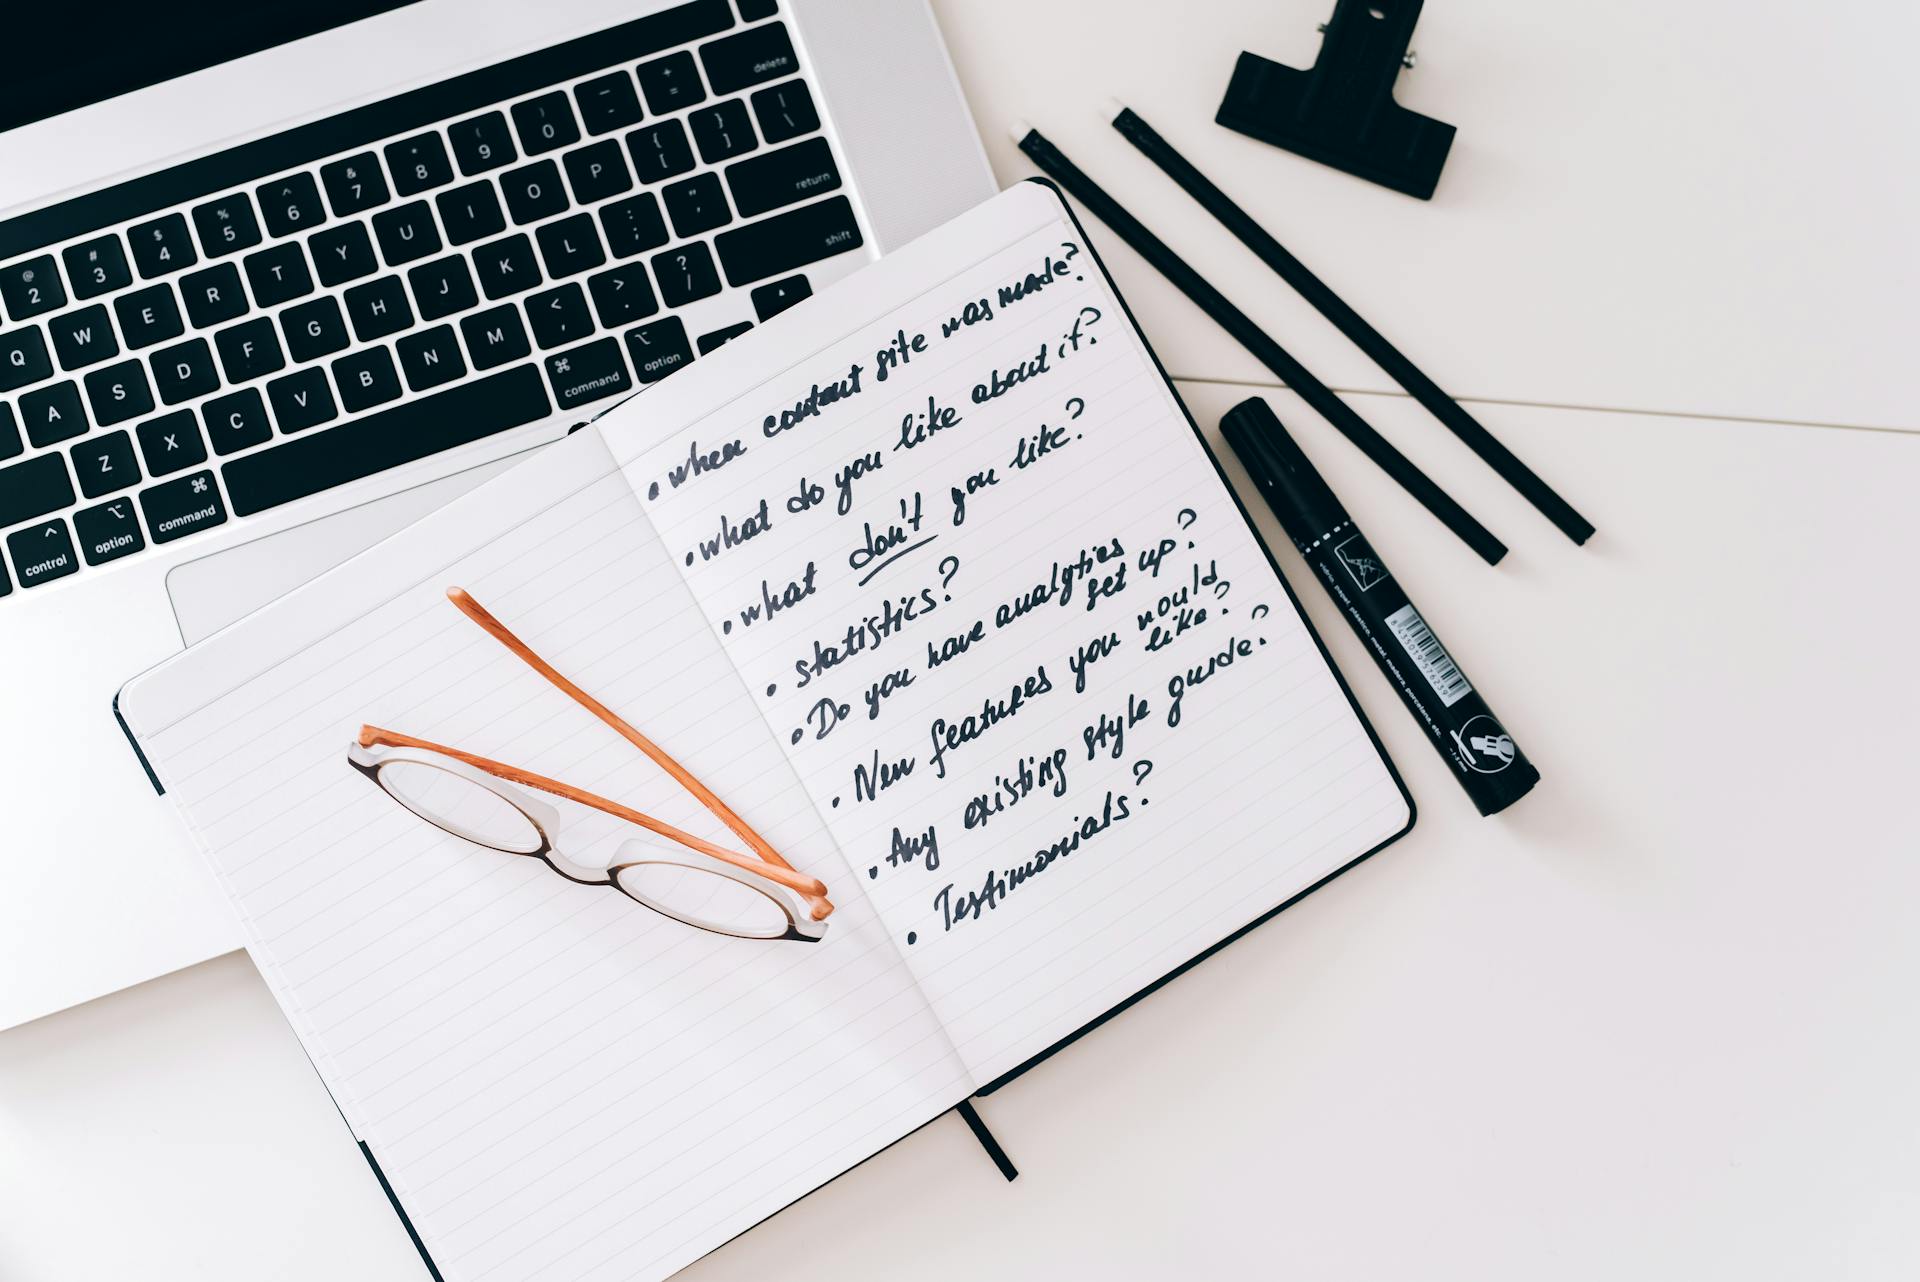 delete
+ =
_ -
) 0
( 9
* 8
& 7
^ 6
% 5
$ 4
# 3
@ 2
Q W E R T Y U I O P { [ } ] | \
A S D F G H J K L : ; " ' return
Z X C V B N M < , > . ? / shift
control option command command option
• when content site was made?
• what do you like about it?
• what don't you like?
• statistics?
• Do you have analytics
set up?
• New features you would
like?
• Any existing style guide?
• Testimonials?
vidrio, papel, plastico, metal, madera, porcelana, etc.
8435019576239